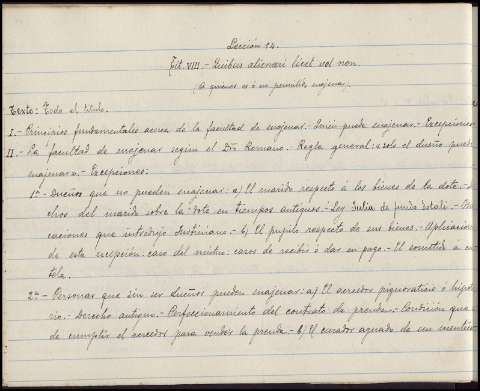 Lección 14.
Tit. VIII.- Quibus alienari licet vel non.
(A quienes es ó no permitido enajenar).
Texto: Todo el titulo.
I.- Principios fundamentales acerca de la facultad de enajenar.- Quien puede enajenar.- Excepciones
II.- La facultad de enajenar según el Dro Romano.- Regla general: solo el dueño puede
enajenar.- Excepciones:
1º- Dueños que no pueden enajenar: a) El marido respecto á los bienes de la dote.-
chos del marido sobre la dote en tiempos antiguos.- Ley Julia de fundo dotali.-
caciones que introdujo Justiniano.- b) El pupilo respecto de sus bienes.- Aplicacion
de esta excepción: caso del mutuo: casos de recibir ó dar en pago.- El sometido a cu-
tela.
2º- Personas que sin ser dueños pueden enajenar: a) El acreedor pignoraticio ó hipote
rio.- Derecho antiguo.- Perfeccionamiento del contrato de prenda.- Condición que
de cumplir el acreedor para vender la prenda.- b) El curador agnado de un mentec